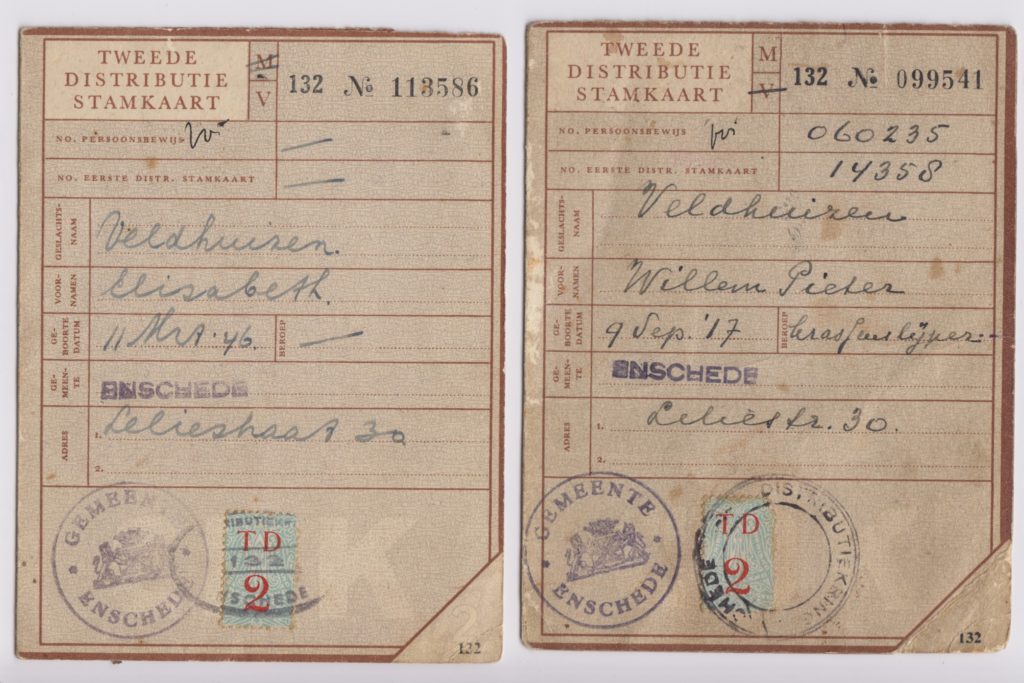 TWEEDE
DISTRIBUTIE
STAMKAART
M
V
132 № 113586
NO. PERSOONSBEWIJS
—
NO. EERSTE DISTR. STAMKAART
—
GESLACHTS-
NAAM
Veldhuizen.
VOOR-
NAMEN
Elisabeth.
GE-
BOORTE
DATUM
11 Mrt. 46.
BEROEP
—
GE-
MEEN-
TE
ENSCHEDE
ADRES
1. Leliestraat 30
2.
GEMEENTE
ENSCHEDE
TD
132
2
132
TWEEDE
DISTRIBUTIE
STAMKAART
M
V
132 № 099541
NO. PERSOONSBEWIJS
060235
NO. EERSTE DISTR. STAMKAART
14358
GESLACHTS-
NAAM
Veldhuizen
VOOR-
NAMEN
Willem Pieter
GE-
BOORTE
DATUM
9 Sep. '17
BEROEP
GE-
MEEN-
TE
ENSCHEDE
ADRES
1. Leliestr. 30.
2.
GEMEENTE
ENSCHEDE
TD
2
DISTRIBUTIEKRING
132